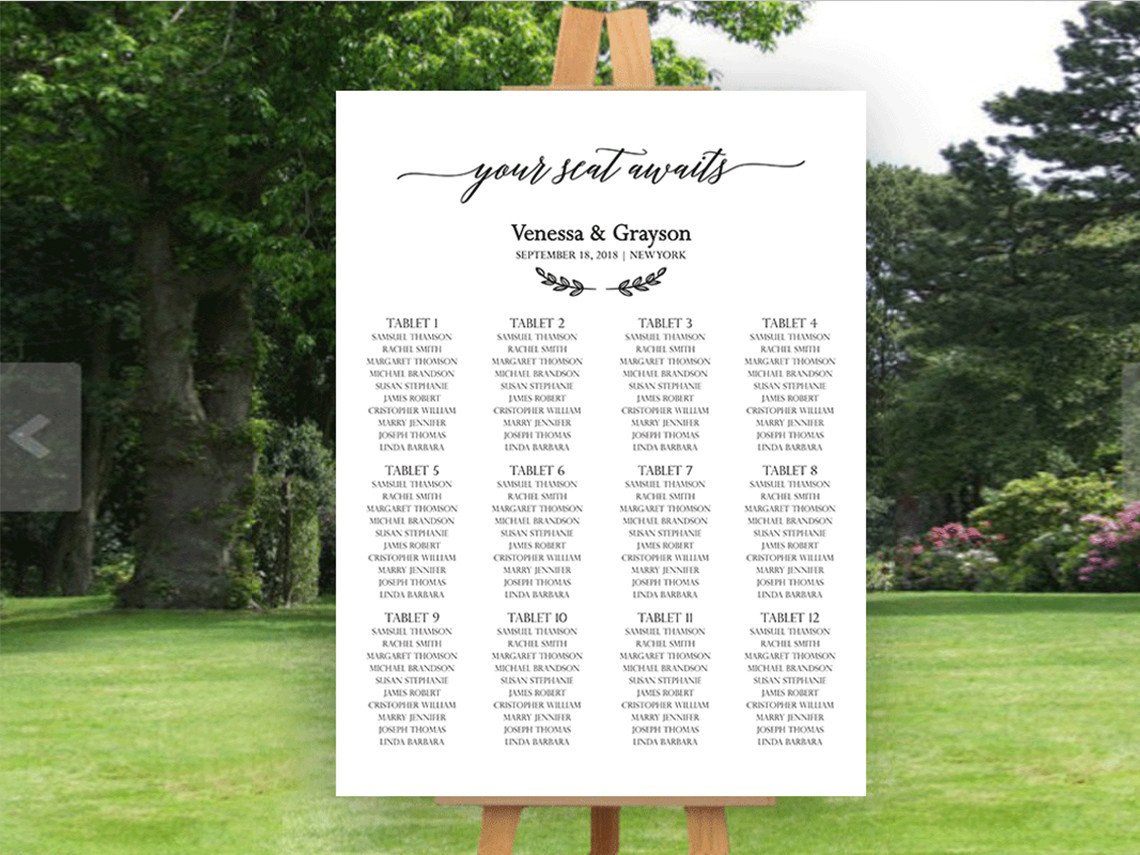 your seat awaits
Venessa & Grayson
SEPTEMBER 18, 2018 | NEWYORK
TABLET 1
SAMSUEL THAMSON
RACHEL SMITH
MARGARET THOMSON
MICHAEL BRANDSON
SUSAN STEPHANIE
JAMES ROBERT
CRISTOPHER WILLIAM
MARRY JENNIFER
JOSEPH THOMAS
LINDA BARBARA
TABLET 2
SAMSUEL THAMSON
RACHEL SMITH
MARGARET THOMSON
MICHAEL BRANDSON
SUSAN STEPHANIE
JAMES ROBERT
CRISTOPHER WILLIAM
MARRY JENNIFER
JOSEPH THOMAS
LINDA BARBARA
TABLET 3
SAMSUEL THAMSON
RACHEL SMITH
MARGARET THOMSON
MICHAEL BRANDSON
SUSAN STEPHANIE
JAMES ROBERT
CRISTOPHER WILLIAM
MARRY JENNIFER
JOSEPH THOMAS
LINDA BARBARA
TABLET 4
SAMSUEL THAMSON
RACHEL SMITH
MARGARET THOMSON
MICHAEL BRANDSON
SUSAN STEPHANIE
JAMES ROBERT
CRISTOPHER WILLIAM
MARRY JENNIFER
JOSEPH THOMAS
LINDA BARBARA
TABLET 5
SAMSUEL THAMSON
RACHEL SMITH
MARGARET THOMSON
MICHAEL BRANDSON
SUSAN STEPHANIE
JAMES ROBERT
CRISTOPHER WILLIAM
MARRY JENNIFER
JOSEPH THOMAS
LINDA BARBARA
TABLET 6
SAMSUEL THAMSON
RACHEL SMITH
MARGARET THOMSON
MICHAEL BRANDSON
SUSAN STEPHANIE
JAMES ROBERT
CRISTOPHER WILLIAM
MARRY JENNIFER
JOSEPH THOMAS
LINDA BARBARA
TABLET 7
SAMSUEL THAMSON
RACHEL SMITH
MARGARET THOMSON
MICHAEL BRANDSON
SUSAN STEPHANIE
JAMES ROBERT
CRISTOPHER WILLIAM
MARRY JENNIFER
JOSEPH THOMAS
LINDA BARBARA
TABLET 8
SAMSUEL THAMSON
RACHEL SMITH
MARGARET THOMSON
MICHAEL BRANDSON
SUSAN STEPHANIE
JAMES ROBERT
CRISTOPHER WILLIAM
MARRY JENNIFER
JOSEPH THOMAS
LINDA BARBARA
TABLET 9
SAMSUEL THAMSON
RACHEL SMITH
MARGARET THOMSON
MICHAEL BRANDSON
SUSAN STEPHANIE
JAMES ROBERT
CRISTOPHER WILLIAM
MARRY JENNIFER
JOSEPH THOMAS
LINDA BARBARA
TABLET 10
SAMSUEL THAMSON
RACHEL SMITH
MARGARET THOMSON
MICHAEL BRANDSON
SUSAN STEPHANIE
JAMES ROBERT
CRISTOPHER WILLIAM
MARRY JENNIFER
JOSEPH THOMAS
LINDA BARBARA
TABLET 11
SAMSUEL THAMSON
RACHEL SMITH
MARGARET THOMSON
MICHAEL BRANDSON
SUSAN STEPHANIE
JAMES ROBERT
CRISTOPHER WILLIAM
MARRY JENNIFER
JOSEPH THOMAS
LINDA BARBARA
TABLET 12
SAMSUEL THAMSON
RACHEL SMITH
MARGARET THOMSON
MICHAEL BRANDSON
SUSAN STEPHANIE
JAMES ROBERT
CRISTOPHER WILLIAM
MARRY JENNIFER
JOSEPH THOMAS
LINDA BARBARA